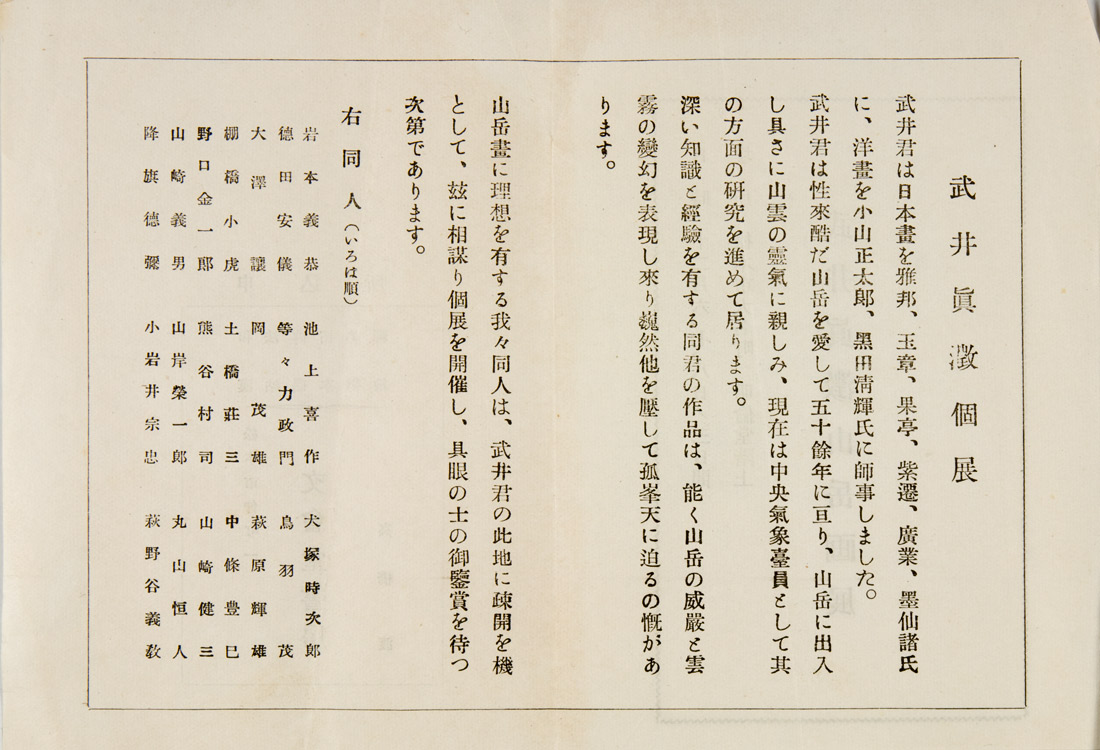 武井眞澂個展
武井君は日本畫を雅邦、玉章、果亭、紫遷、廣業、墨仙諸氏
に、洋畫を小山正太郎、黑田淸輝氏に師事しました。
武井君は性來酷だ山岳を愛して五十餘年に亘り、山岳に出入
し具さに山雲の靈氣に親しみ、現在は中央氣象臺員として其
の方面の硏究を進めて居ります。
深い知識と經驗を有する同君の作品は、能く山岳の威嚴と雲
霧の變幻を表現し來り巍然他を壓して孤峯天に迫るの慨があ
ります。
山岳畫に理想を有する我々同人は、武井君の此地に疎開を機
として、玆に相謀り個展を開催し、具眼の士の御鑒賞を待つ
次第であります。
右同人（いろは順）
岩本義恭 池上喜作 犬塚時次郎
德田安儀 等々力政門 鳥羽茂
大澤讓 岡茂雄 萩原輝雄
棚橋小虎 土橋莊三 中條豊巳
野口金一郎 熊谷村司 山崎健三
山崎義男 山岸榮一郎 丸山恒人
降旗德彌 小岩井宗忠 萩野谷義敎